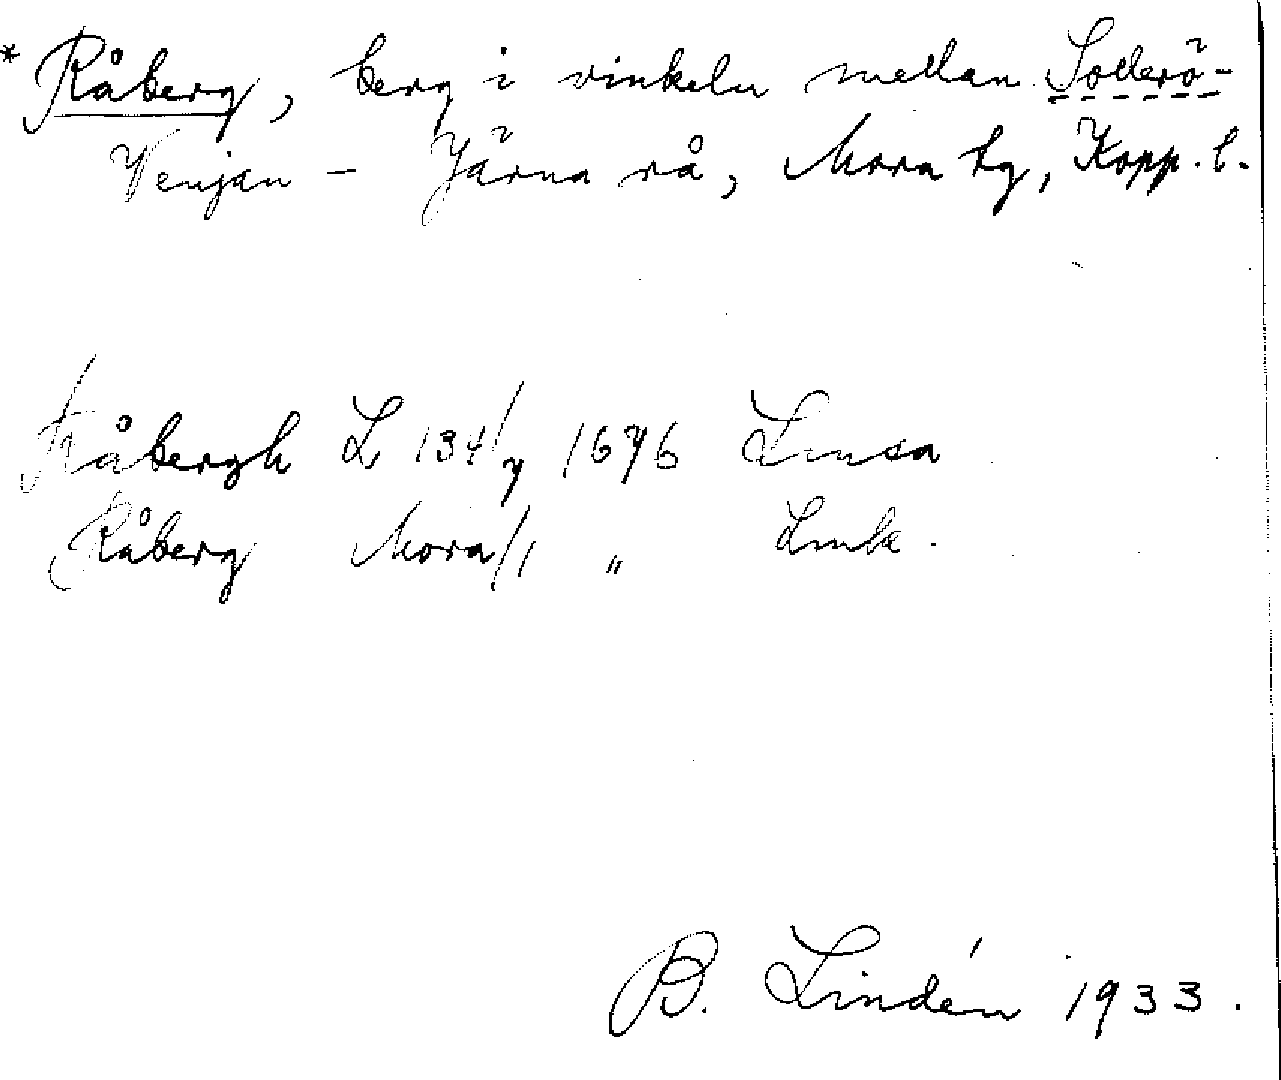 * Råberg, berg i vinkeln mellan Sollerö-
Venjan - Järna rå, Mora tg, Kopp. l.
Råbergh L 134/7 1676 Lmsa
Råberg Mora/1 „ Lmk.
B. Lindén 1933.